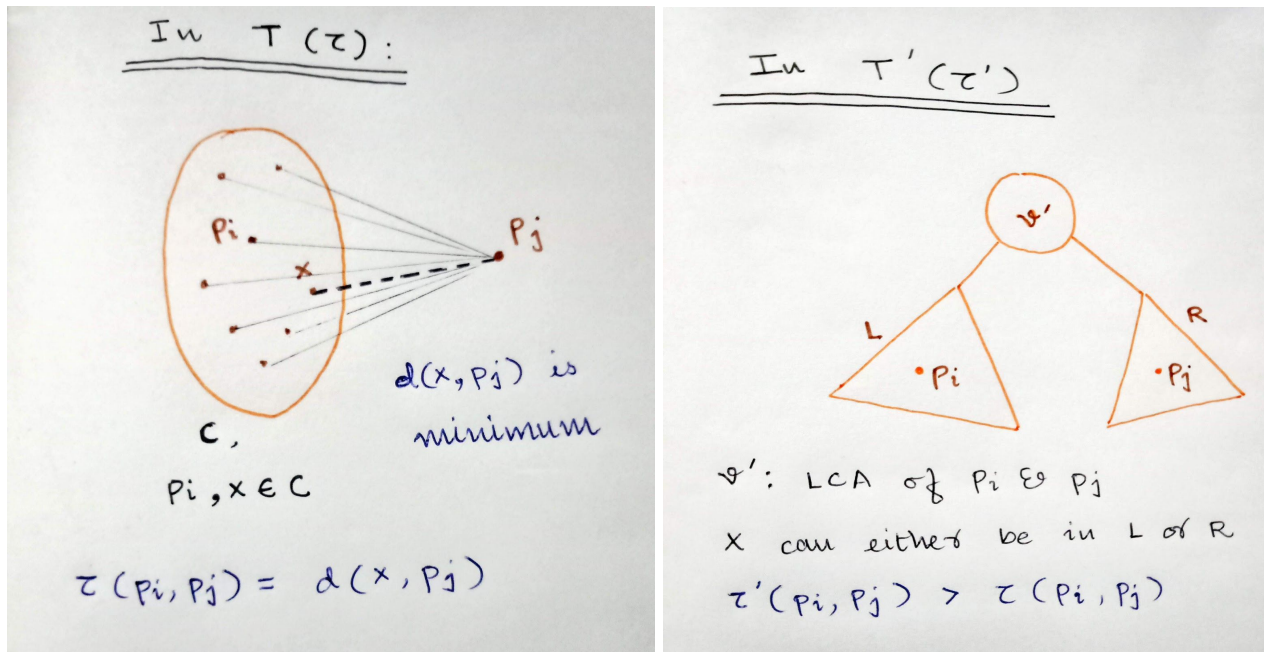 In T(τ):
Pi
x
Pj
d(x,Pj) is
minimum
C,
Pi, x ∈ C
τ(Pi,Pj) = d(x,Pj)
In T'(τ')
v'
L
R
Pi
Pj
v': LCA of Pi & Pj
x can either be in L or R
τ'(Pi,Pj) > τ(Pi,Pj)